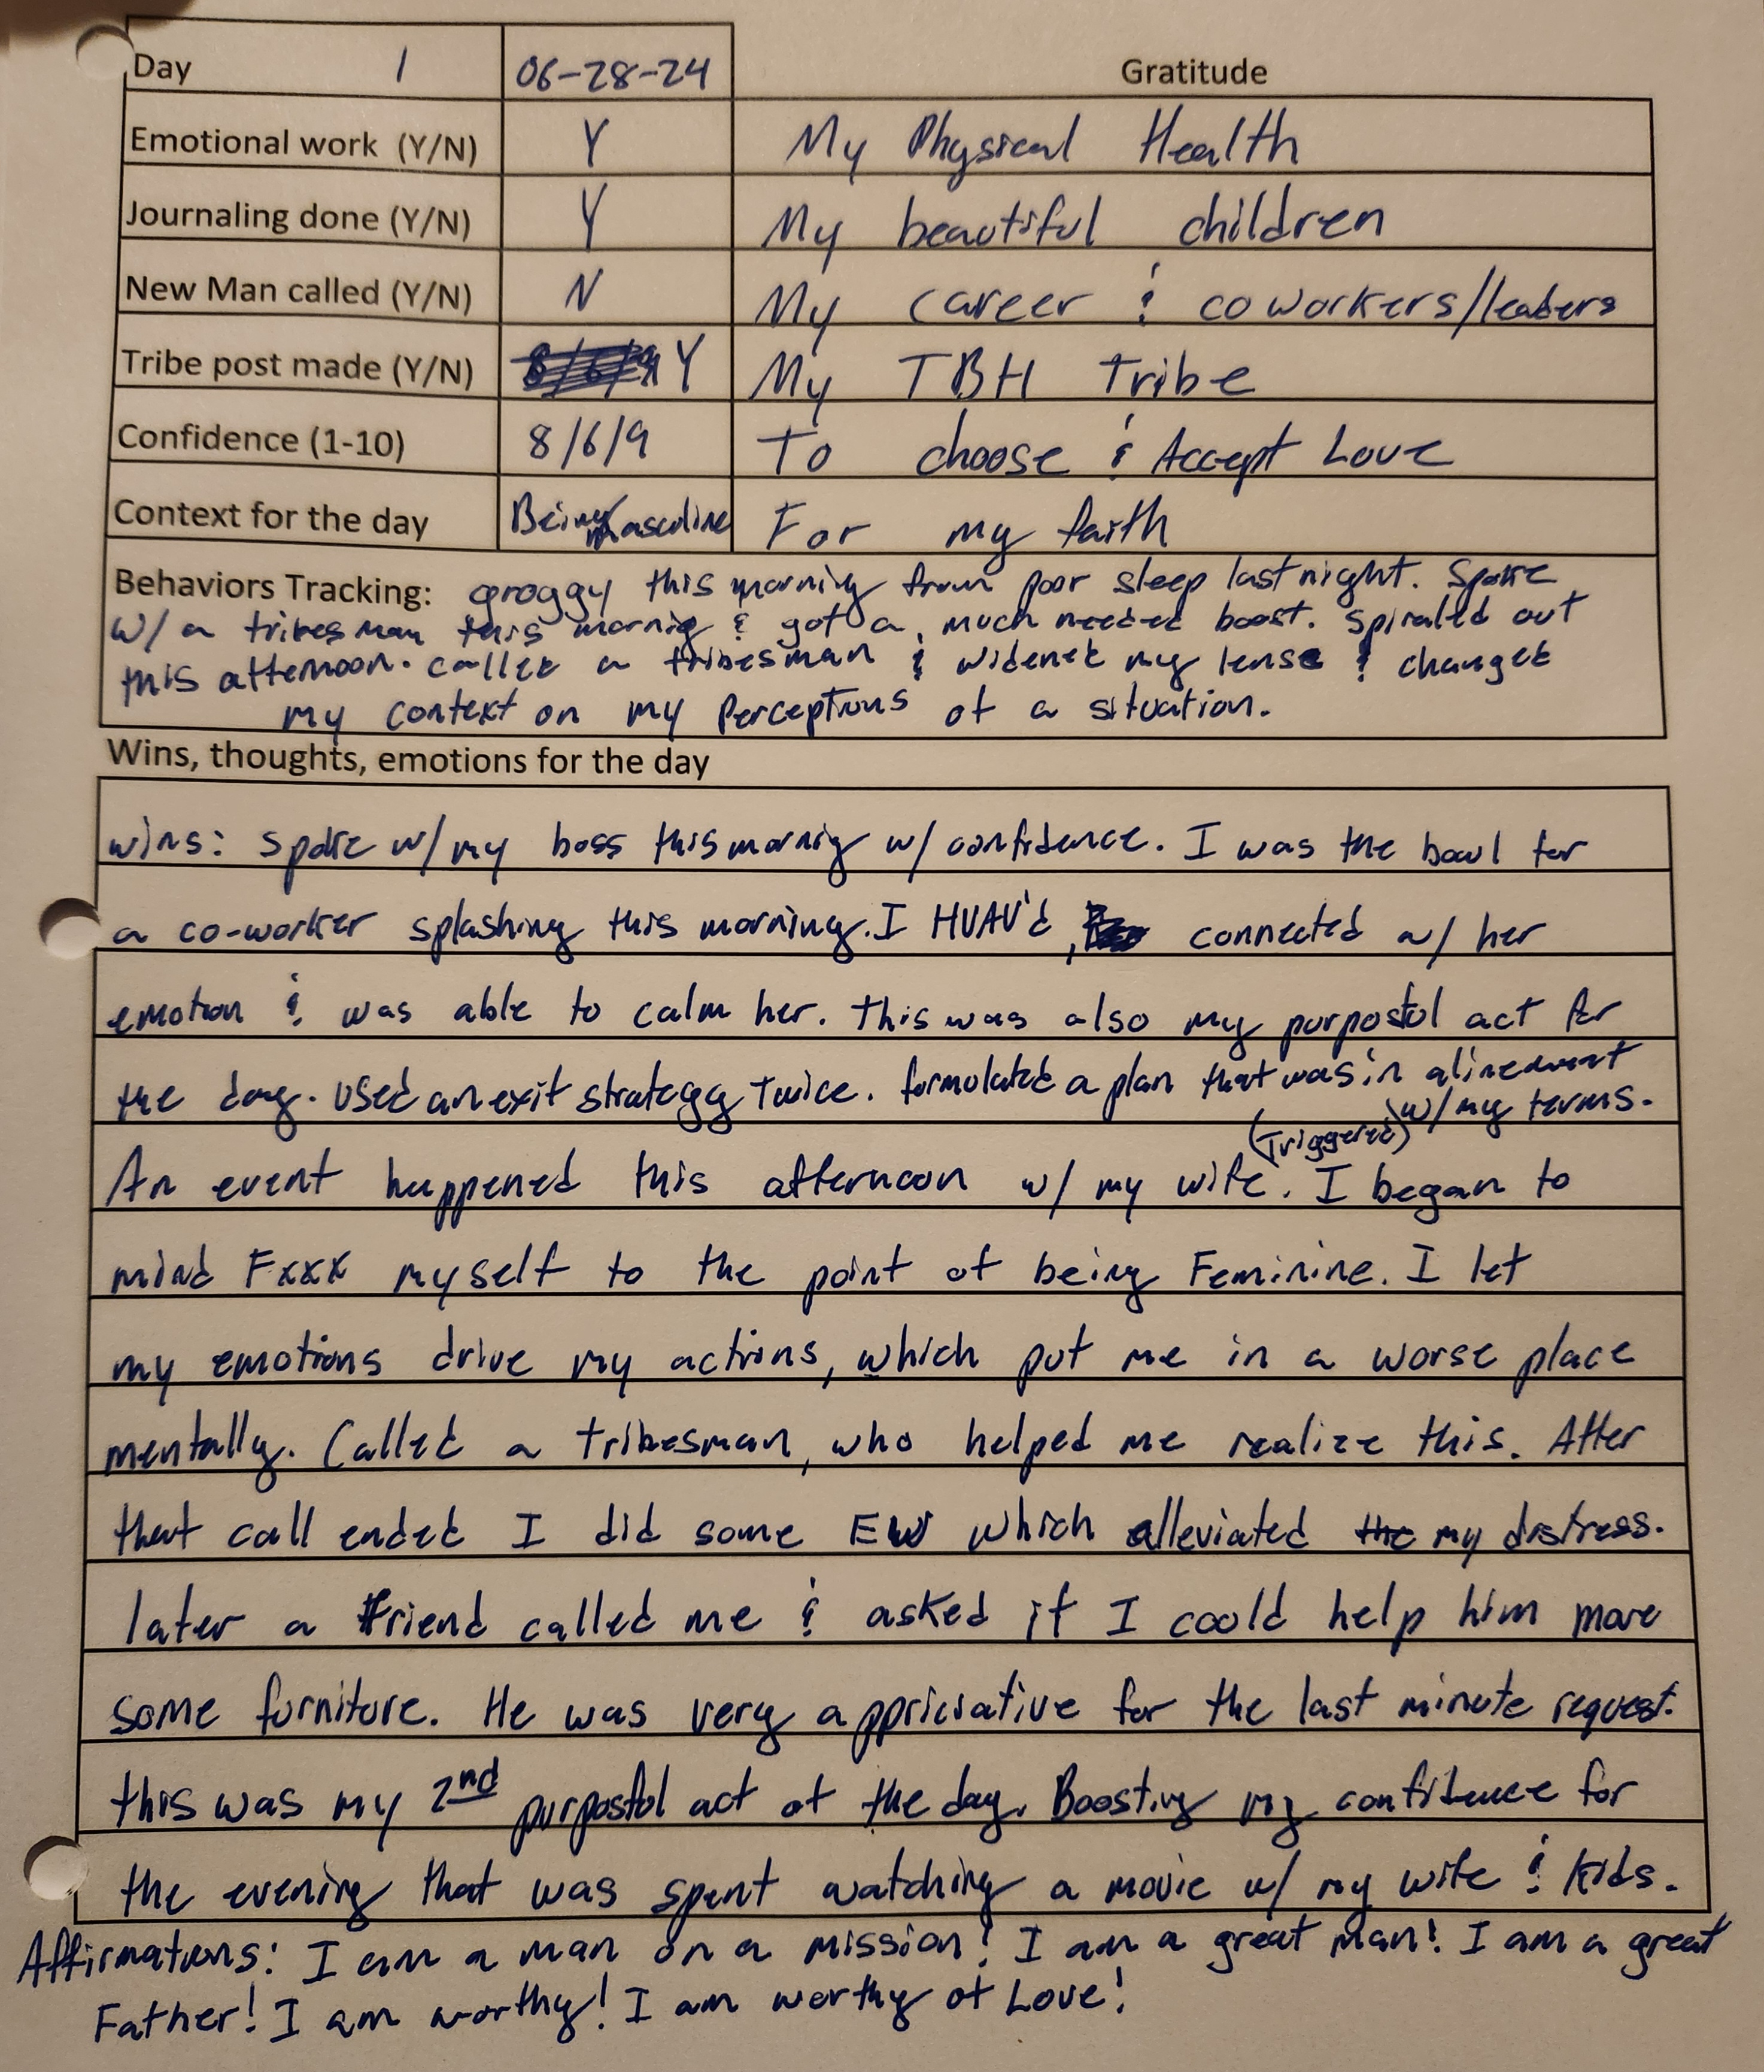 Day 1 06-28-24 Gratitude
Emotional work (Y/N) Y My Physical Health
Journaling done (Y/N) Y My beautiful children
New Man called (Y/N) N My career & coworkers/leaders
Tribe post made (Y/N) 8/6/9 Y My TBH Tribe
Confidence (1-10) 8/6/9 To choose & Accept Love
Context for the day Being Masculine For my faith
Behaviors Tracking: groggy this morning from poor sleep last night. Spoke
w/ a tribesman this mornig & got a much needed boost. Spiraled out
this afternoon. called a tribesman & widened my lense & changed
my context on my perceptions of a situation.
Wins, thoughts, emotions for the day
wins: spoke w/ my boss this mornig w/ confidence. I was the bowl for
a co-worker splashing this morning. I HVAV'd, connected w/ her
emotion & was able to calm her. This was also my purposful act for
the day. Used an exit strategy Twice. formulated a plan that was in alinement
w/ my terms.
(Triggered)
An event happened this afternoon w/ my wife. I began to
mind Fxxx myself to the point of being Feminine. I let
my emotions drive my actions, which put me in a worse place
mentally. Called a tribesman, who helped me realize this. After
that call ended I did some EW which alleviated the my distress.
later a friend called me & asked if I could help him move
some furniture. He was very appriciative for the last minute request.
this was my 2nd purposful act of the day. Boosting my confidence for
the evening that was spent watching a movie w/ my wife & kids.
Affirmations: I am a man on a mission! I am a great man! I am a great
Father! I am worthy! I am worthy of Love!